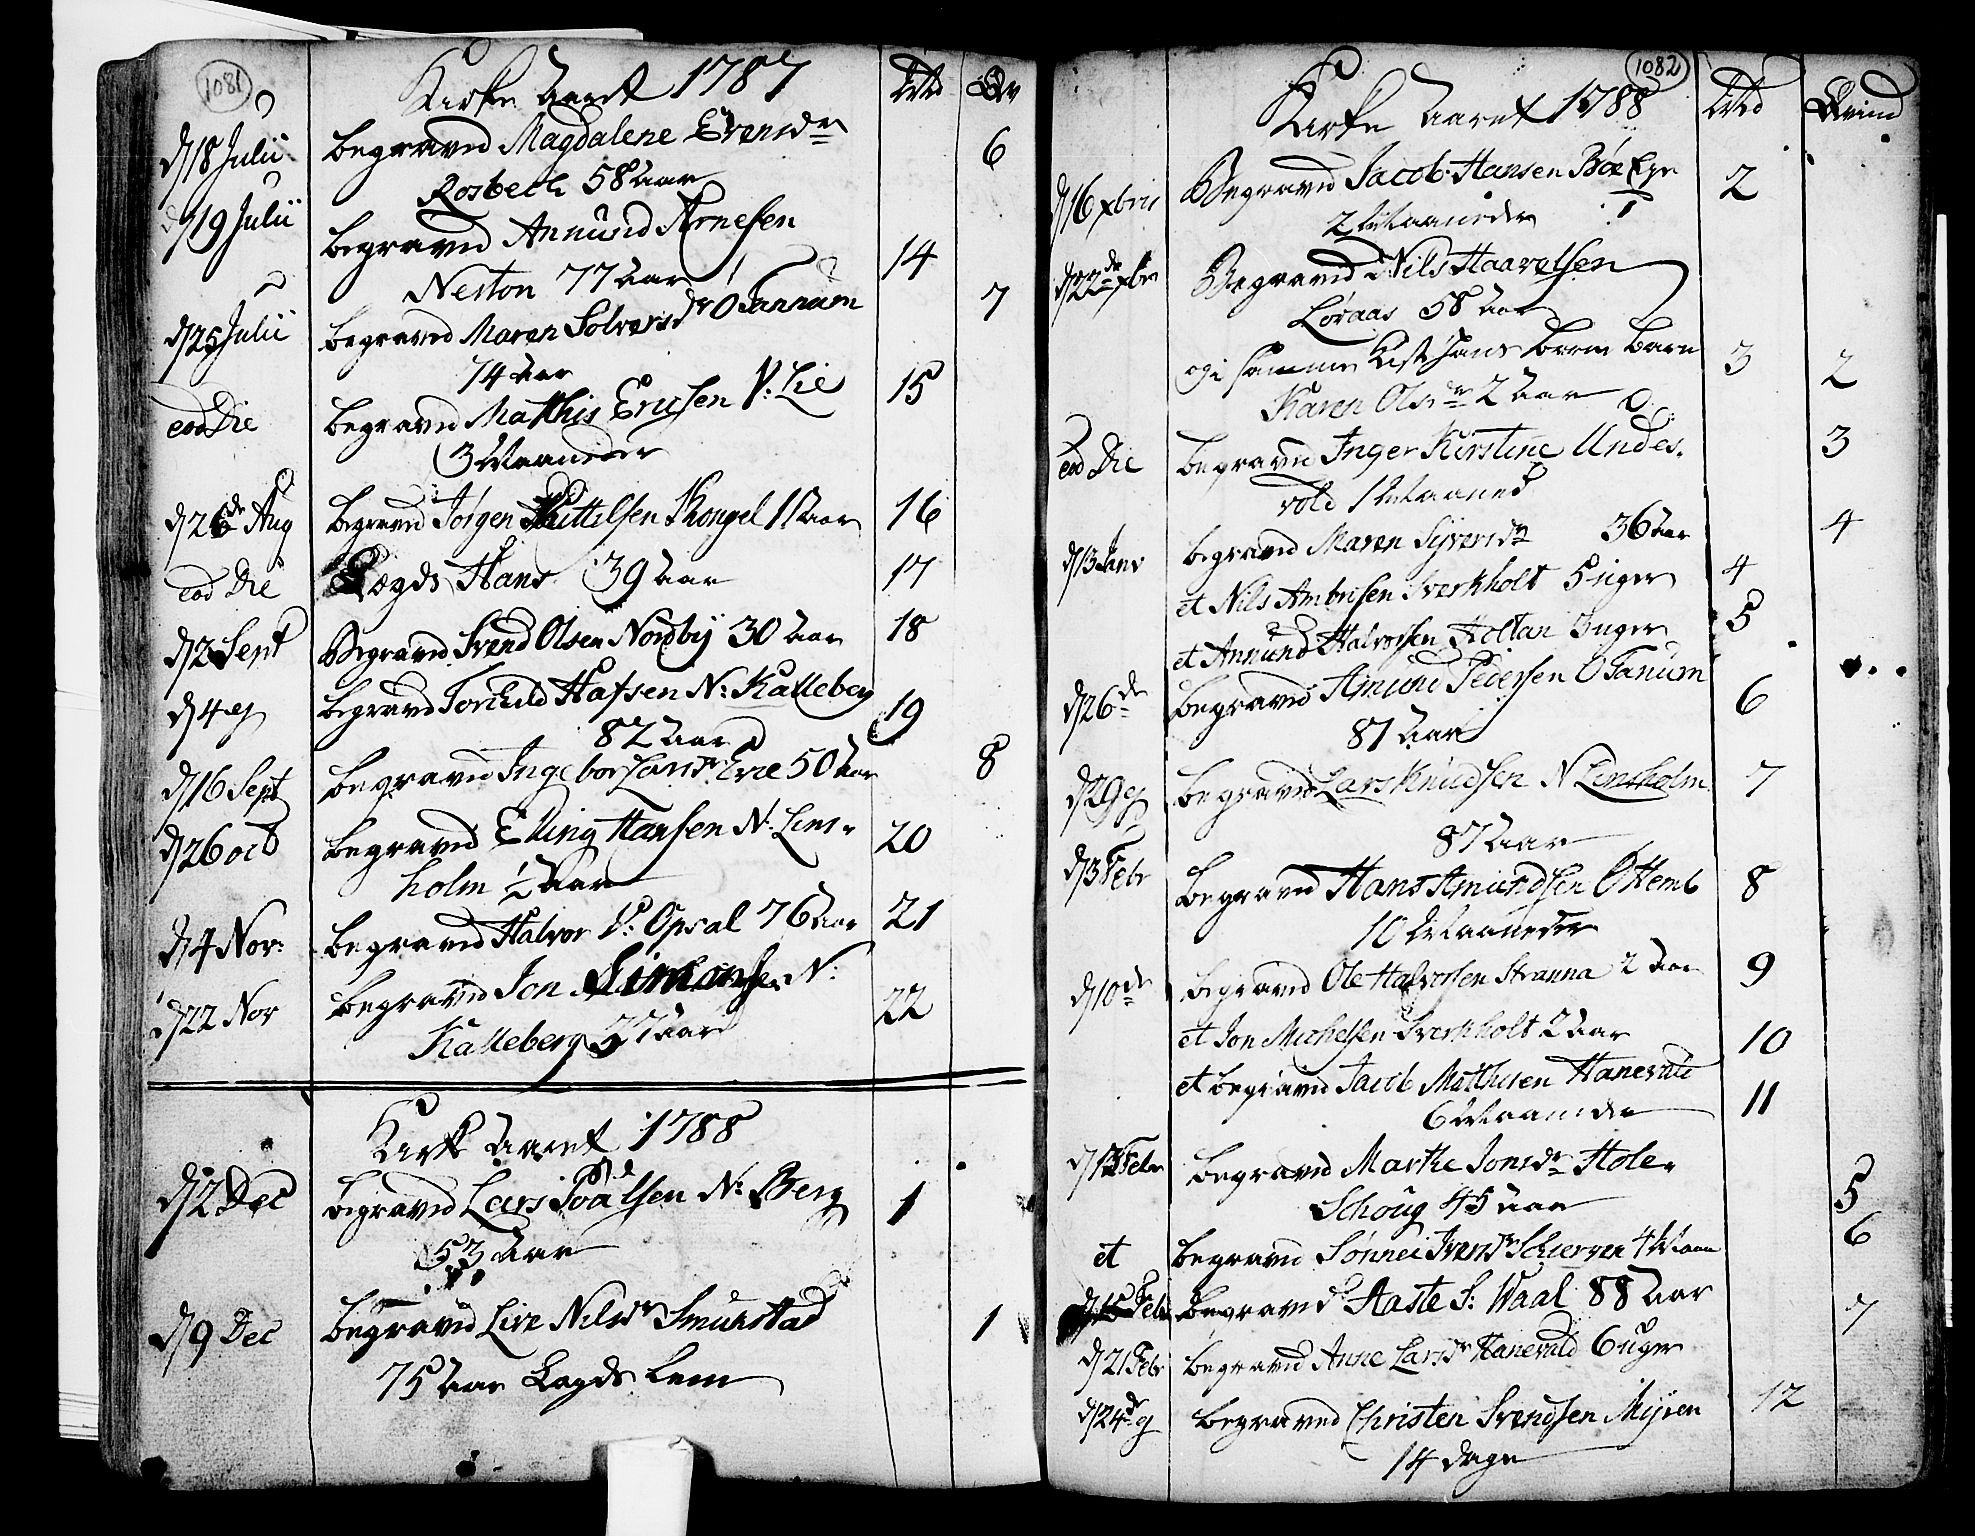 1081
Kirke Aaret 1787
Md
Qv
d 18 Julii
begraved Magdalene Evensdr
6
Rosbech 58 Aar
d 19 Julii
begraved Anmund Arnesen
14
Neston 77 Aar
d 25 Julii
begraved Maren Solversdr Ø Tannum
7
74 Aar
eod Die
begraved Mathis Ericsen V: Lie
15
3 Maaneder
d 26de Aug
begraved Jørgen Kittilsen Kongel 11 Aar
16
eod Die
Lægds Hans 39 Aar
17
d 2 Sept
Begraved Svend Olsen Nordbÿ 30 Aar
18
d 4 ej
begraved Torchild N: Kalleberg
19
82 Aar
d 16 Sept
begraved Ingebor Larsdr Erre 50 Aar
8
d 26 oct
begraved Elling Hansen N: Lins-
20
holm ½ Aar
d 4 Nov:
begraved Halvor V: Opsal 76 Aar
21
d 22 Nov
begraved Jon Simonsen N:
22
Kalleberg 37 Aar
Kirke Aaret 1788
d 2 Dec
begraved Lars Povalsen N: Berg
1
53 Aar
d 9 Dec
begraved Live Nilsdr Smørstad
1
75 Aar Lægds Lem
1082
Kirke Aaret 1788
Md
Qvind
d 16 xbris
Begraved Jacob Hansen Bøe
2
2 Maaneder
d 22de xbris
Begraved Nils Haavelsen
Løraas 58 Aar
og i samme Kiste hans barn
3
2
Karen Olsdr 2 Aar
eod Die
begraved Inger Kirstine Undes-
3
vold 1 Maaned
d 13 Janv
begraved Maren Sÿversdr 36 Aar
4
et Nils Ambrisen Sverkholt 5 uger
4
et Anmund Halvorsen Holtan 3 uger
5
d 26de
begraved Amund Pedersen Ø Tanum
6
81 Aar
d 29 ej
begraved Lars Knudsen N Linsholm
7
87 Aar
d 3 Febr
begraved Hans Amundsen Ø Hemb
8
10 Maaneder
d 10de
begraved Ole Halvorsen Stranna 2 Aar
9
et Jon Michelsen Sverkholt 2 Aar
10
et begraved Jacob Mathisen Hanevald
11
6 Maaneder
d 13 Febr
begraved Marthe Jonsdr Hole-
5
Schoug 45 Aar
et
begraved Sønnei Iversdr Schierven 4 Maan
6
Febr
begraved Aaste S: Waal 88 Aar
7
d 21 Febr
begraved Anne Larsdr Hanevald 6 uger
d 24de ej
begraved Christen Svendsen Mÿren
12
14 dage